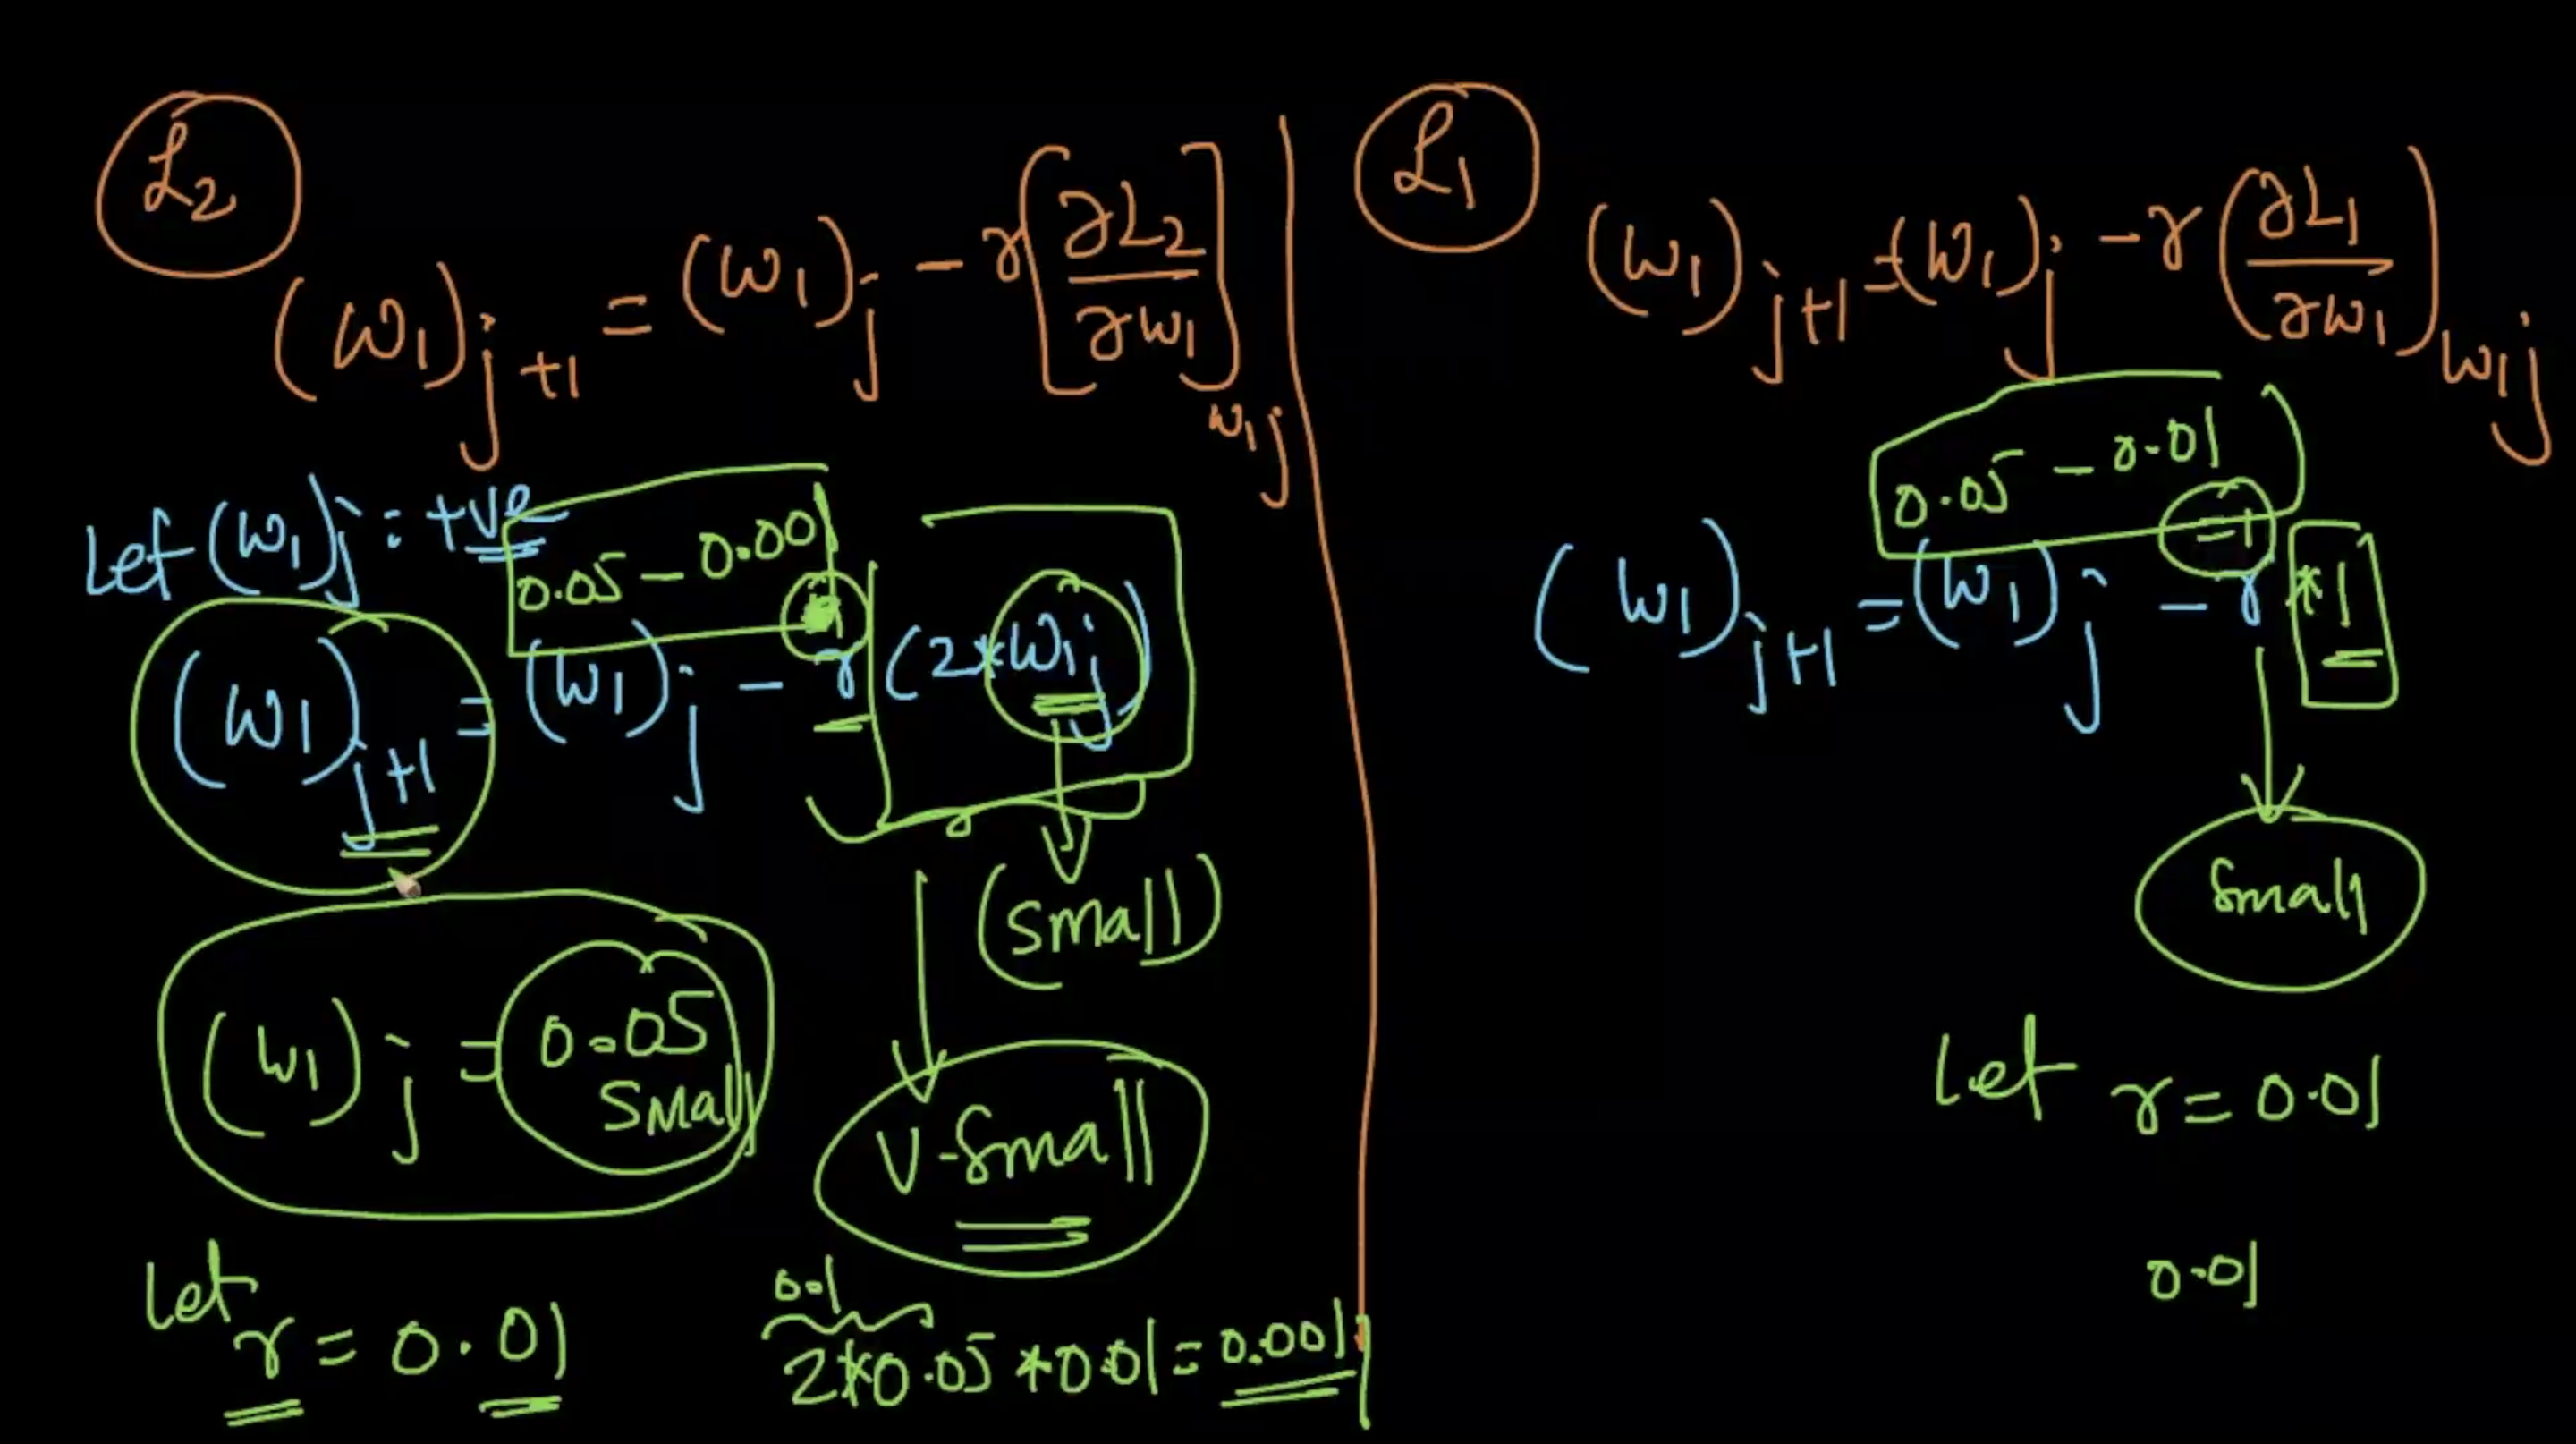 L2
(w1)j+1 = (w1)j - r[∂L2/∂w1]w1j
Let (w1)j : +ve
0.05 - 0.001
(w1)j+1 = (w1)j - r(2*w1j)
(small)
(w1)j = 0.05
small
V-small
Let
r = 0.01
0.1
2*0.05*0.01 = 0.001
L1
(w1)j+1 = (w1)j - r(∂L1/∂w1)w1j
0.05 - 0.01
(w1)j+1 = (w1)j - r *1
small
Let r = 0.01
0.01